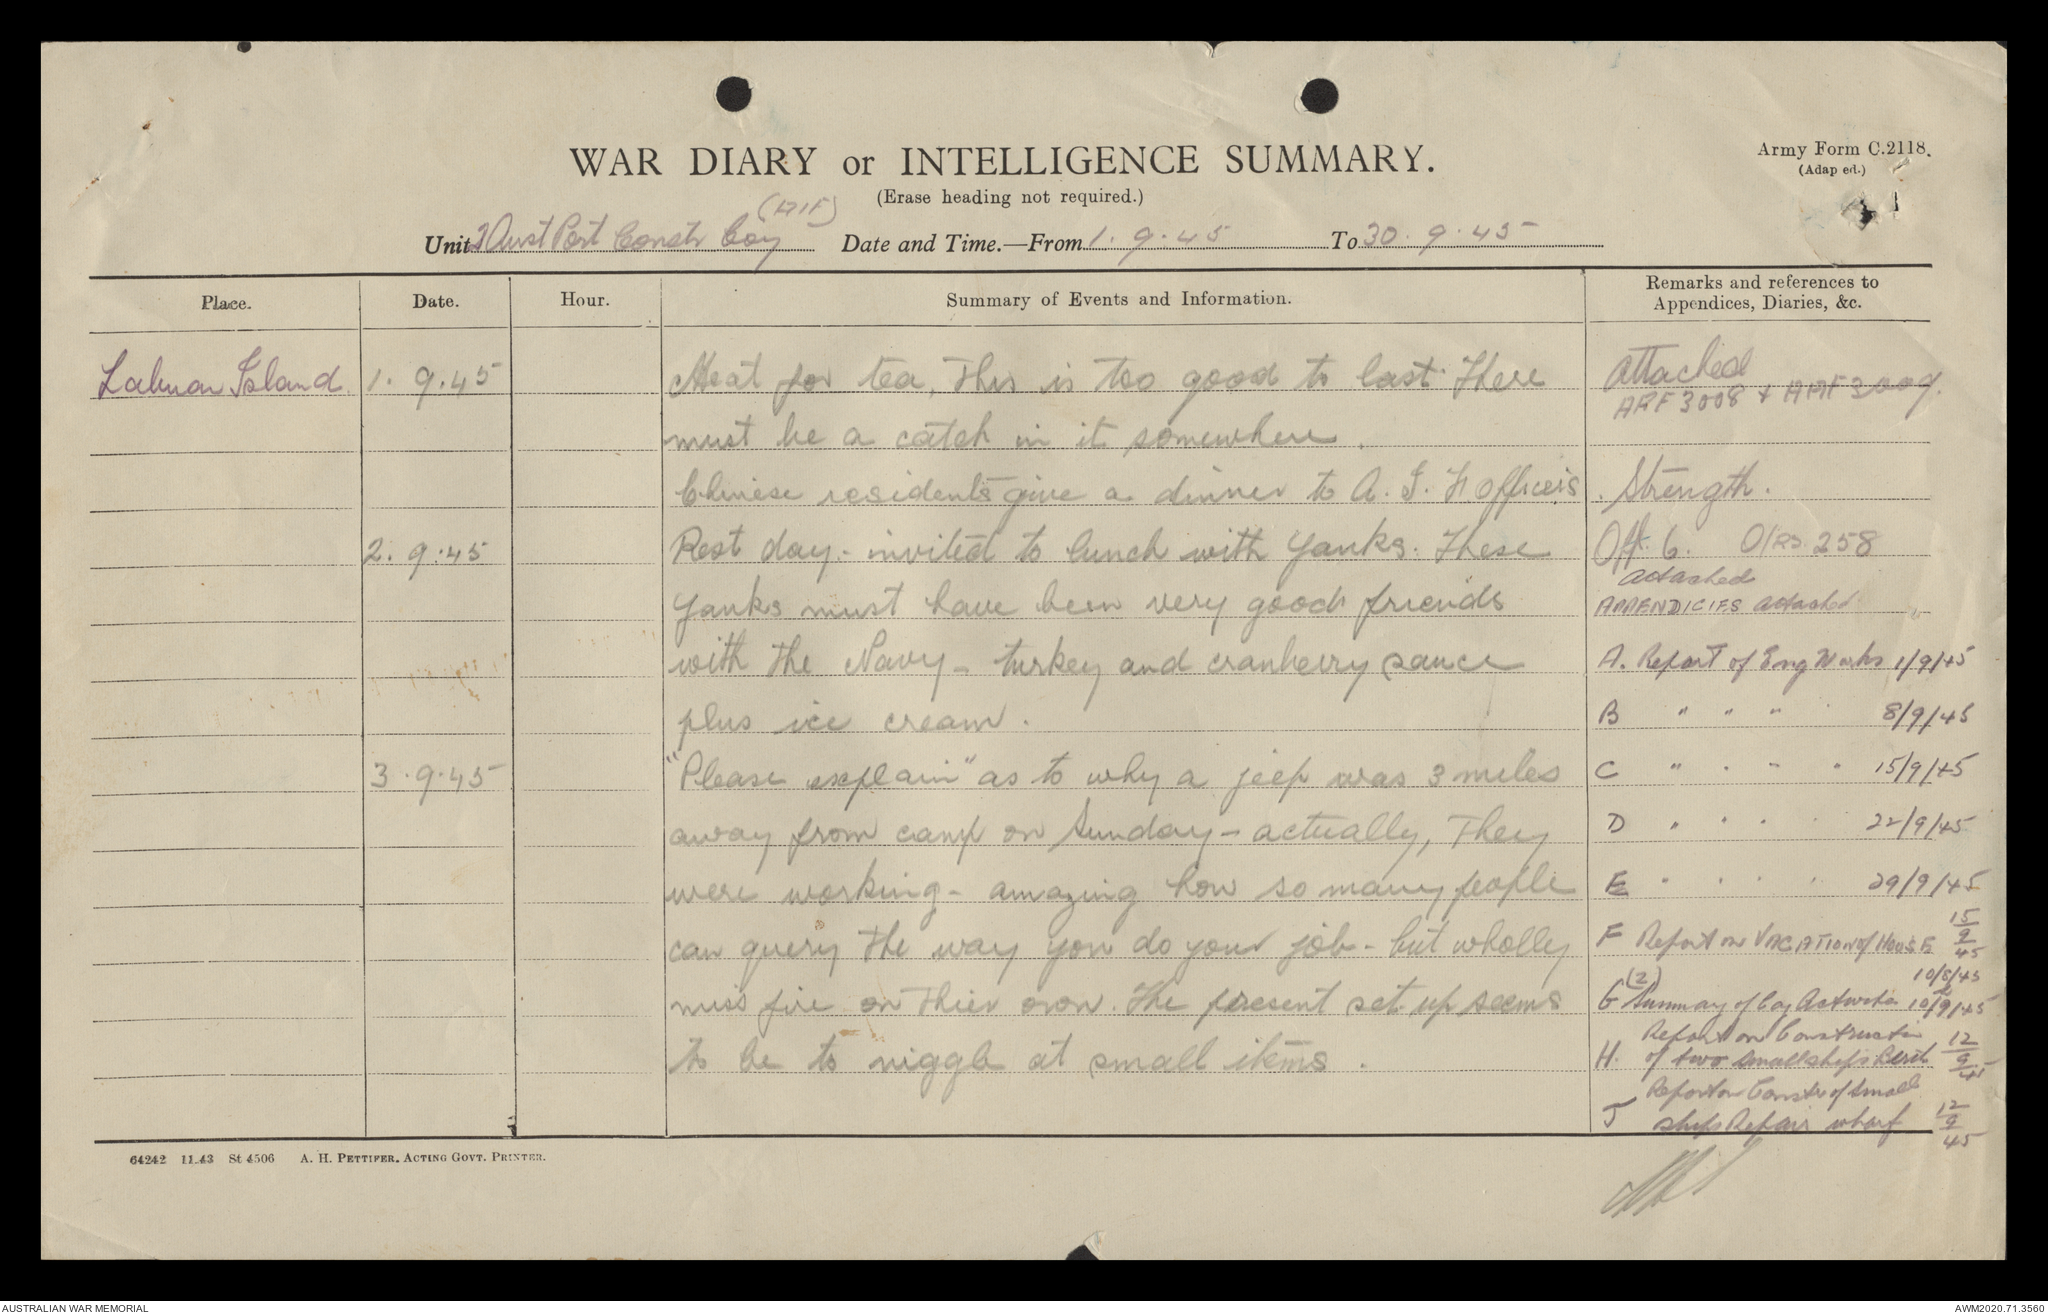 WAR DIARY or INTELLIGENCE SUMMARY.
(Erase heading not required.)
Army Form C.2118.
(Adapted.)
(AIF)
Unit 2 Aust Port Constr Coy Date and Time.—From 1. 9. 45 To 30. 9. 45
Place. Date. Hour. Summary of Events and Information. Remarks and references to Appendices, Diaries, &c.
Labuan Island. 1. 9. 45 Meat for tea, this is too good to last. There
must be a catch in it somewhere.
Chinese residents give a dinner to A. I. F officers.
2. 9. 45 Rest day - invited to lunch with Yanks. These
Yanks must have been very good friends
with the Navy - turkey and cranberry sauce
plus ice cream.
3. 9. 45 "Please explain" as to why a jeep was 3 miles
away from camp on Sunday - actually, they
were working - amazing how so many people
can query the way you do your job - but wholly
miss fire on thier own. The present set-up seems
to be to niggle at small items.
Attached
ARF 3008 + AAF 3009.
Strength.
Off. 6. O/Rs. 258
attached
APPENDICIES attached
A. Report of Eng Works 1/9/45
B " " " 8/9/45
C " " " " 15/9/45
D " " " " 22/9/45
E " " " " 29/9/45
F Report on VACATION of HOUSE 15/9/45
G (2) Summary of Coy Activities 10/8/45 & 10/9/45
H. Report on Construction of two small ships Berth 12/9/45
J Report on Constr of small ships Repair wharf 12/9/45
64242 11.43 St 4506 A. H. PETTIFER, ACTING GOVT. PRINTER.
AUSTRALIAN WAR MEMORIAL
AWM2020.71.3560